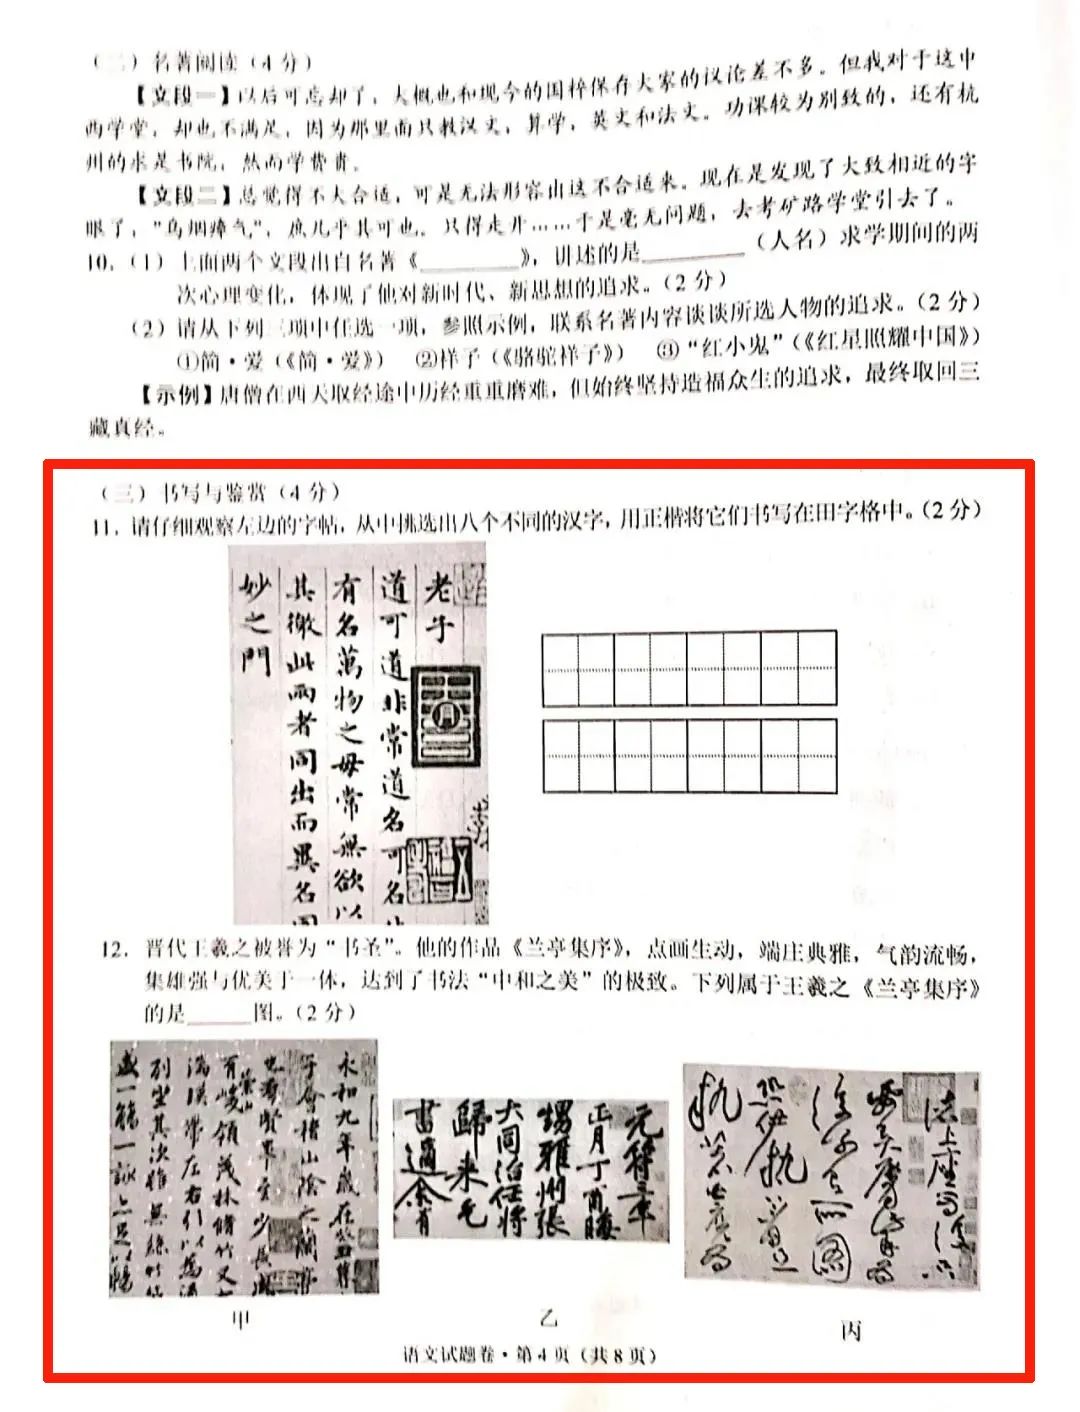 （二）名著阅读（4 分）
【文段一】以后可忘却了，大概也和现今的国粹保存大家的议论差不多。但我对于这中
西学堂，却也不满足，因为那里面只教汉文，算学，英文和法文。功课较为别致的，还有杭
州的求是书院，然而学费贵。
【文段二】总觉得不大合适，可是无法形容出这不合适来。现在是发现了大致相近的字
眼了，“乌烟瘴气”，庶几乎其可也。只得走开……于是毫无问题，去考矿路学堂引去了。
10.（1）上面两个文段出自名著《________》，讲述的是________（人名）求学期间的两
次心理变化，体现了他对新时代、新思想的追求。（2 分）
（2）请从下列三项中任选一项，参照示例，联系名著内容谈谈所选人物的追求。（2 分）
①简·爱（《简·爱》） ②样子（《骆驼祥子》） ③“红小鬼”（《红星照耀中国》）
【示例】唐僧在西天取经途中历经重重磨难，但始终坚持造福众生的追求，最终取回三
藏真经。
（三）书写与鉴赏（4 分）
11. 请仔细观察左边的字帖，从中挑选出八个不同的汉字，用正楷将它们书写在田字格中。（2 分）
老子
道可道非常道名可名
有名萬物之母常無欲以
其徼此兩者同出而異名同
妙之門
12. 晋代王羲之被誉为“书圣”。他的作品《兰亭集序》，点画生动，端庄典雅，气韵流畅，
集雄强与优美于一体，达到了书法“中和之美”的极致。下列属于王羲之《兰亭集序》
的是_____图。（2 分）
永和九年歲在癸丑暮
于會稽山陰之蘭亭
羣賢畢至少長咸
有崇山峻領茂林脩竹又
湍暎帶左右引以為流
列坐其次雖無絲竹
盛一觴一詠亦足以暢
元符三年
正月丁酉晦
甥雅州張
大同治任將
歸來乞
書適余有
甲
乙
丙
语文试题卷·第 4 页（共 8 页）